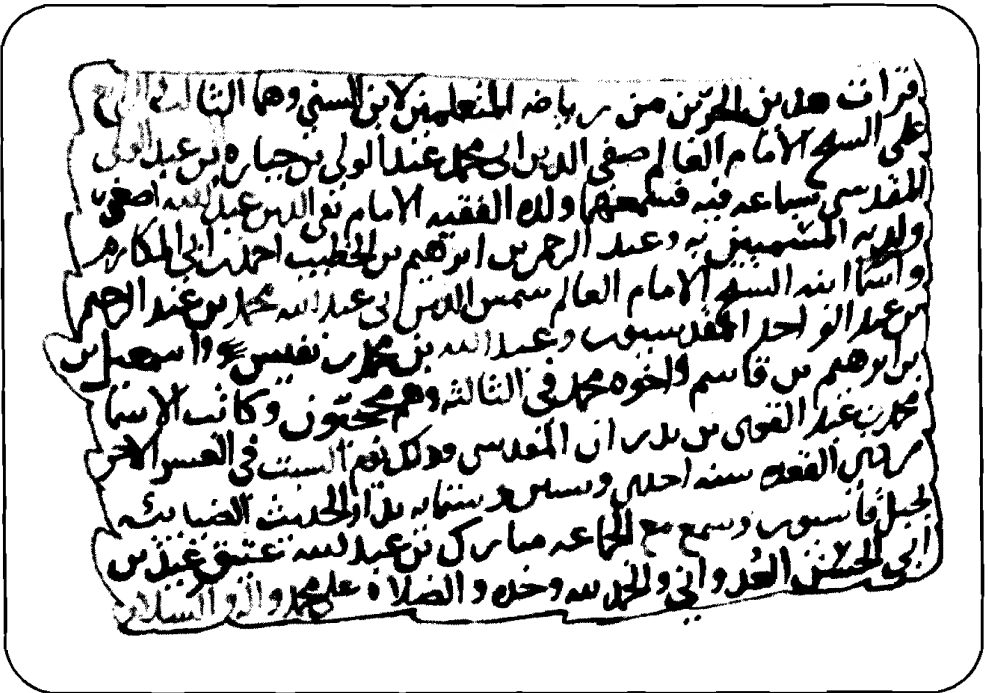 قرأت هذين الجزئين من رياضة المتعلمين لابن السني وهما الثالث والرابع
على الشيخ الامام العالم صفي الدين ابي محمد عبد الولي بن جبارة بن عبد الولي
المقدسي بسماعه فيه فسمعهما ولده الفقيه الامام تقي الدين عبد الله
ولديه المسميين به وعبد الرحمن بن ابرهيم بن الخطيب احمد بن ابي المكارم
وابنه الشيخ الامام العالم شمس الدين ابي عبد الله محمد بن عبد الرحيم
بن عبد الواحد المقدسيون وعبد الله بن محمد بن نفيس واسمعيل بن
بن ابرهيم بن قاسم واخوه محمد في الثالثة وهم محجتون وكاتب الاسما
محمد بن عبد القوي بن بدران المقدسي وذلك يوم السبت في العشر الاخر
من ذي القعدة سنة احدى وستين وستمايه بدار الحديث الضيائيه
بجبل قاسيون وسمع مع الجماعه مبارك بن عبد الله عتيق
ابي الحسن العدواني والحمد لله وحده والصلاة على محمد وآله والسلام